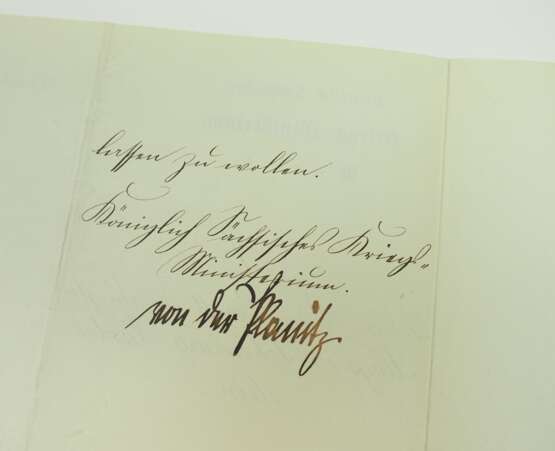 lassen zu wollen.
Königlich Sächsisches Kriegs-
Ministerium.
von der Planitz